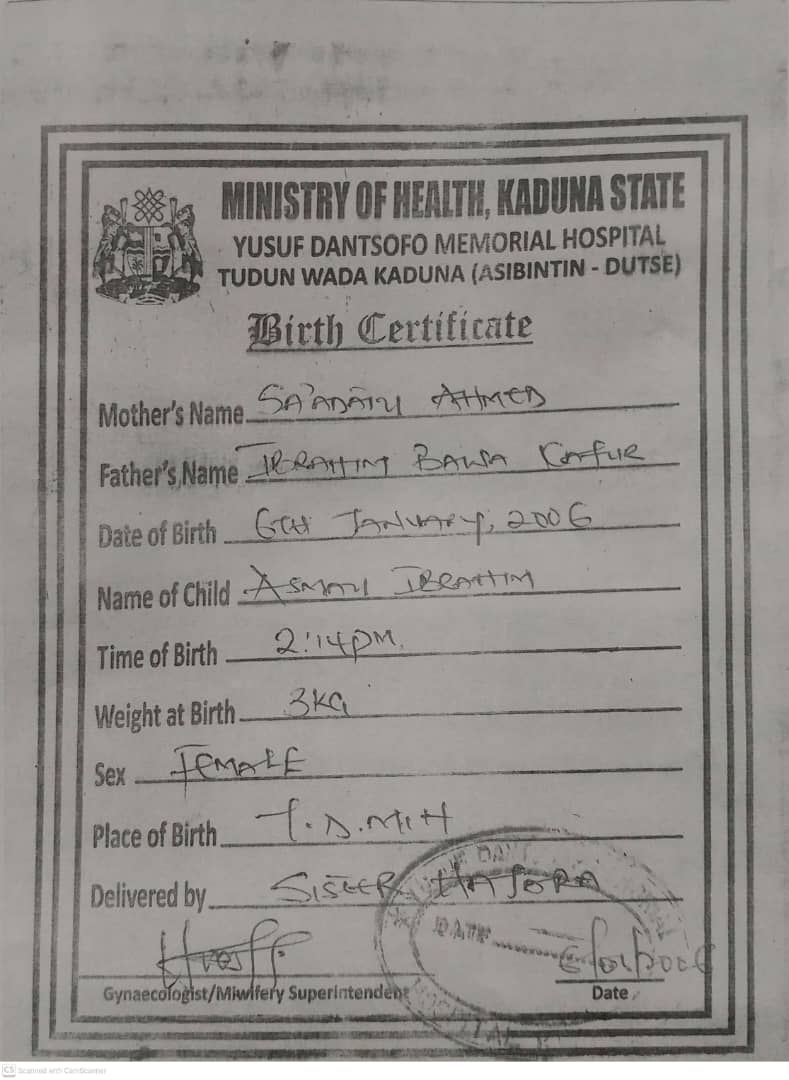 MINISTRY OF HEALTH, KADUNA STATE
YUSUF DANTSOFO MEMORIAL HOSPITAL
TUDUN WADA KADUNA (ASIBINTIN - DUTSE)
Birth Certificate
Mother's Name SA'ADATU AHMED
Father's Name IBRAHIM BAWA KAFUR
Date of Birth 6TH JANUARY, 2006
Name of Child ASMAU IBRAHIM
Time of Birth 2:14PM.
Weight at Birth 3KG
Sex FEMALE
Place of Birth Y.D.M.H
Delivered by SISTER HAJARA
DATE
6/01/2006
Gynaecologist/Miwifery Superintendent Date
CS Scanned with CamScanner